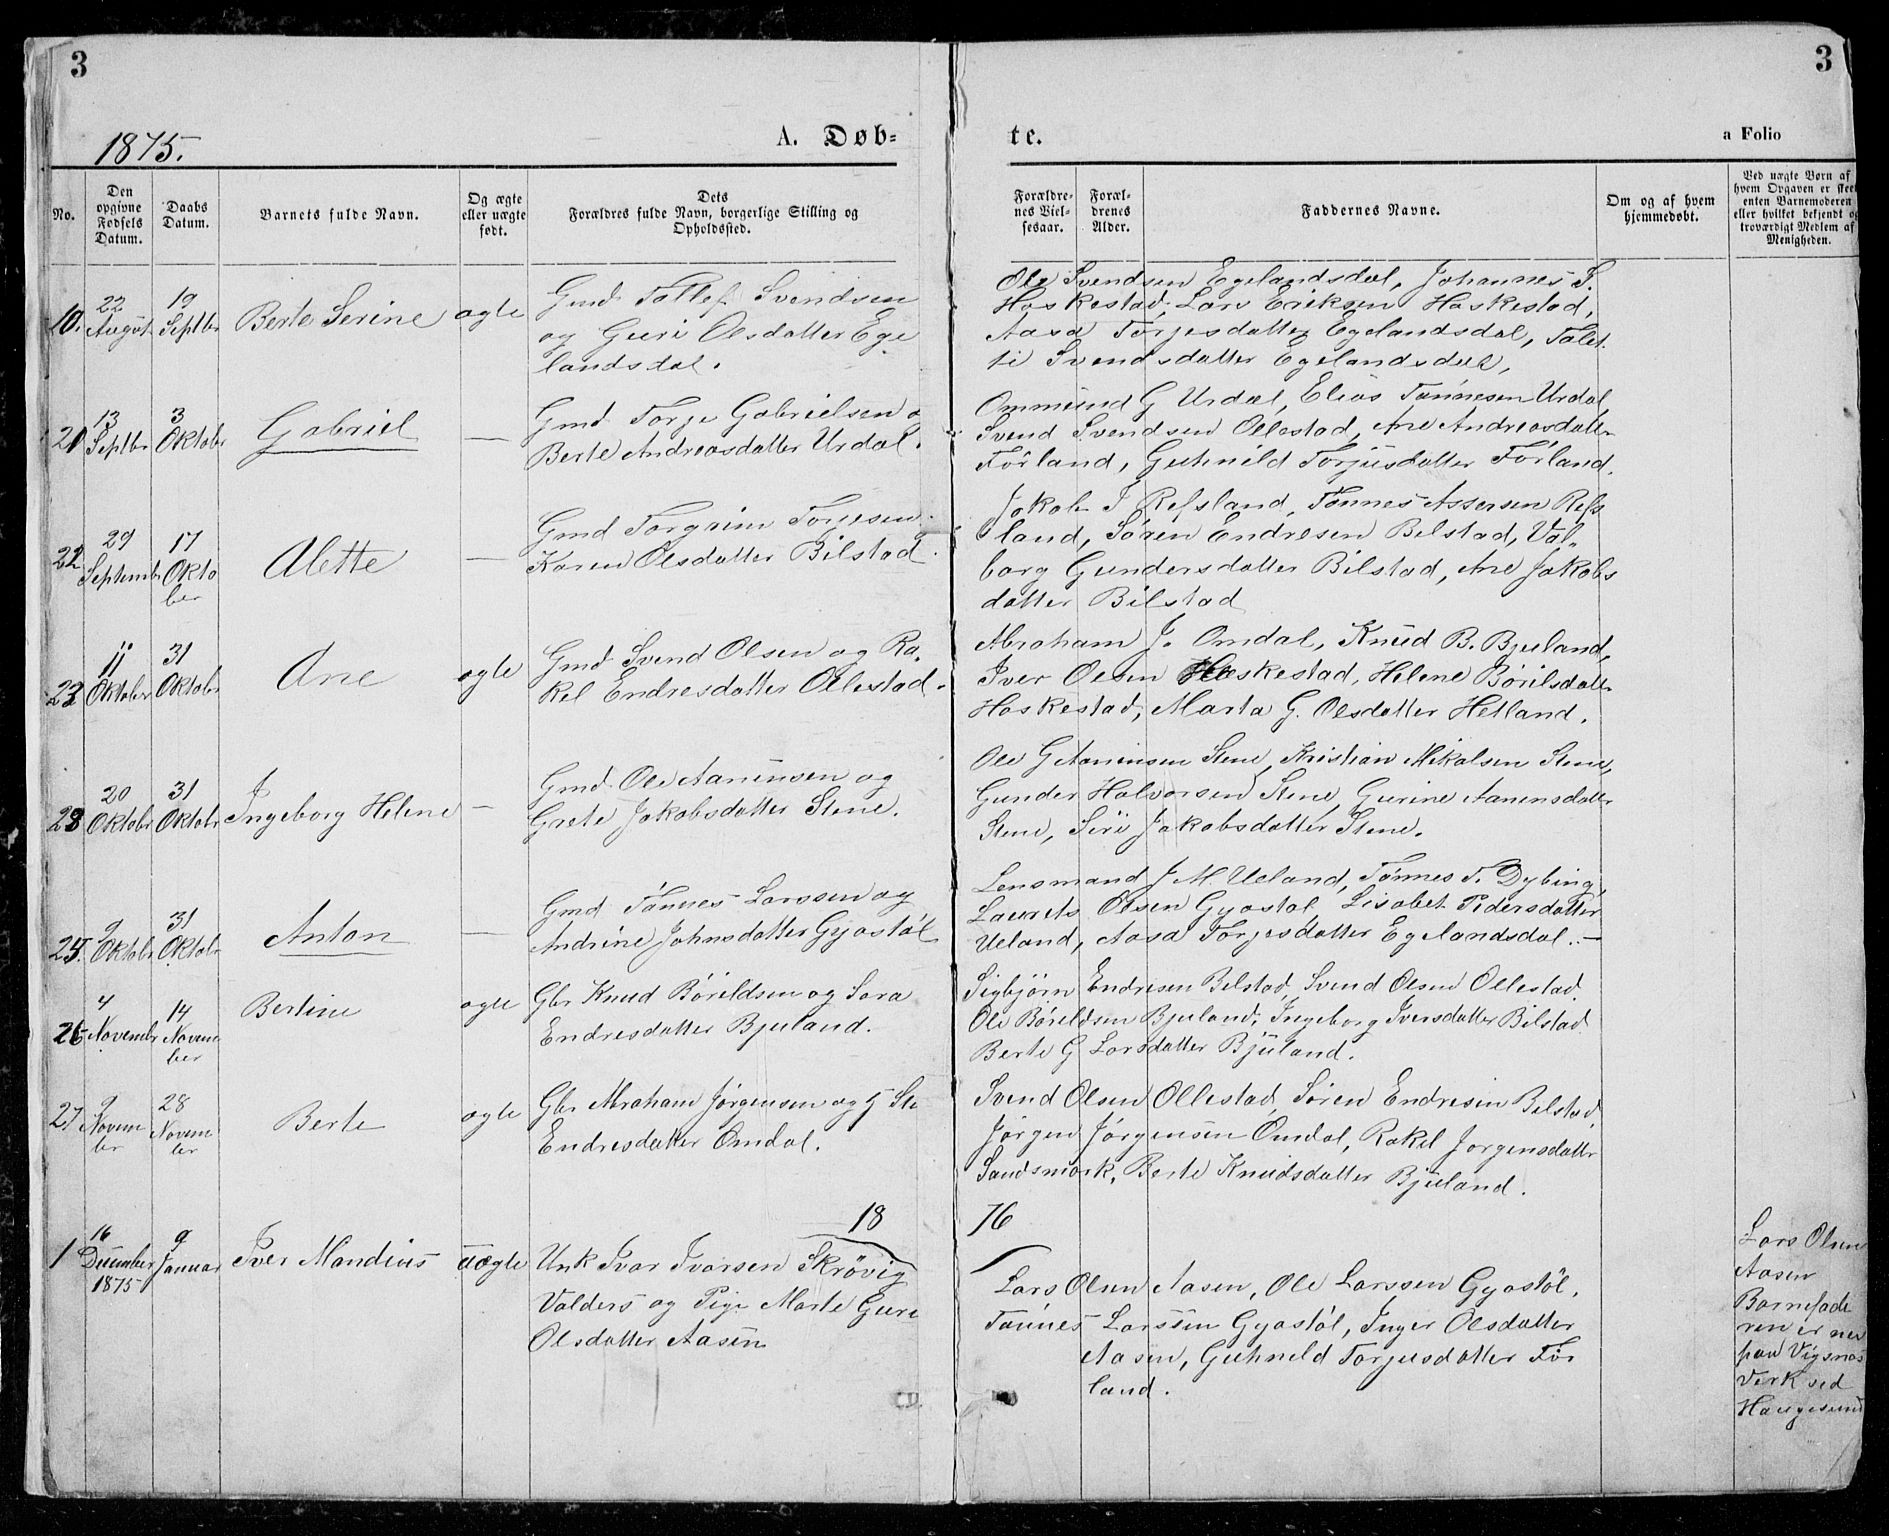 3
3
1875.
A. Døb-
te.
a Folio
No.
Den
opgivne
Fødsels
Datum.
Daabs
Datum.
Barnets fulde Navn.
Og ægte
eller uægte
født.
Dets
Forældres fulde Navn, borgerlige Stilling og
Opholdssted.
Forældre-
nes Viel-
sesaar.
Foræl-
drenes
Alder.
Faddernes Navne.
Om og af hvem
hjemmedøbt.
Ved uægte Børn af
hvem Opgaven er skeet
enten Barnemoderen
eller hvilket bekjendt og
troværdigt Medlem af
Menigheden.
22
August
19
Septbr
Berte Serine
ægte
Gmd. Tollef Svendsen
og Guri Olsdatter Ege
landsdal.
Ole Svendsen Egelandsdal, Johannes S.
Haskestad, Lars Eriksen Haskestad,
Aasa Torjesdatter Egelandsdal, Talet
te Svendsdatter Egelandsdal,
21
13
Septbr
3
Oktobr
Gabriel
—
Gmd Torje Gabrielsen o
Berte Andreasdatter Urdal.
Ommund G Urdal, Elias Tønnesen Urdal,
Svend Svendsen Ollestad, Ane Andreasdatter
Førland, Guhnild Torjusdatter Førland.
22
29
Septembr
17
Okto
ber
Alette
—
Gmd Torgrim Torjesen
Karen Olsdatter Bilstad.
Jakob J Refsland, Tønnes Assersen Refs
land, Søren Endresen Bilstad, Val-
borg Gundersdatter Bilstad, Ane Jakobs
datter Bilstad
23
11
Oktobr
31
Oktobr
Ane
ægte
Gmd. Svend Olsen og Ra-
kel Endresdatter Ollestad.
Abraham J. Omdal, Knud B. Bjuland,
Iver Olsen Haskestad, Helene Børilsdatter
Haskestad, Marta G. Olsdatter Hetland.
20
Oktobr
31
Oktobr
Ingeborg Helene
—
Gmd. Ole Aanensen og
Grete Jakobsdatter Stene.
Ole G Aanensen Stene, Kristian Mikalsen Stene,
Gunder Halvorsen Stene, Gurine Aanensdatter
Stene, Siri Jakobsdatter Stene.
25.
9
Oktobr
31
Oktobr
Anton
—
Gmd Tønnes Larssen og
Andrine Johnsdatter Gyastøl
Lensmand J M Ueland, Tønnes T. Dybing,
Laurits Olsen Gyastøl Lisabet Pedersdatter
Ueland, Aasa Torjesdatter Egelandsdal.—
26
4
Novembr
14
Novem
ber
Bertine
ægte
Gbr Knud Børildsen og Sara
Endresdatter Bjuland.
Sigbjørn Endresen Bilstad, Svend Olsen Ollestad.
Ole Børildsen Bjuland, Ingeborg Iversdatter Bilstad
Berte G Larsdatter Bjuland.
27
9
Novem
ber
28
Novem
ber
Berte
ægte
Gbr Abraham Jørgensen og
Endresdatter Omdal.
Svend Olsen Ollestad, Søren Endresen Bilstad,
Jørgen Jørgensen Omdal, Rakel Jørgensdatter
Sandsmark, Berte Knudsdatter Bjuland.
18
76
1
16
December
1875
9
Januar
Iver Mandius
uægte
Unk Ivar Ivarsen Skrøvig
Valders og Pige Marte Guri
Olsdatter Aasen
Lars Olsen Aasen, Ole Larssen Gyastøl,
Tønnes Larssen Gyastøl, Inger Olsdatter
Aasen, Guhneld Torjusdatter Før
land.
Lars Olsen
Aasen
Barnefade
ren er nu
paa Vigsnæs
Verk ved
Haugesund